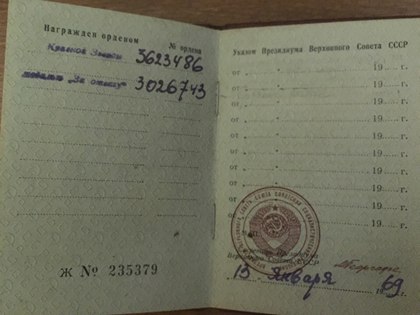 Награжден орденом
№ ордена
Красной Звезды 3623486
медалью „За отвагу“ 3026743
Ж № 235379
Указом Президиума Верховного Совета СССР
от „ 19 г.
от „ 19 г.
от „ 19 г.
от „ 19 г.
от „ 19 г.
от „ 19 г.
от „ 19 г.
от 19 г.
от 19 г.
М.П.
Президиума
Верховного Совета СССР
13 Января 69 г.